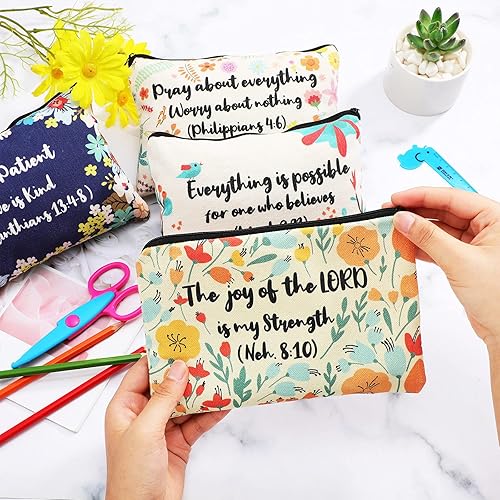 Pray about everything
Worry about nothing
(Philippians 4:6)
Everything is possible
for one who believes
Patient
is Kind
13:4-8)
The joy of the LORD
is my Strength
(Neh. 8:10)